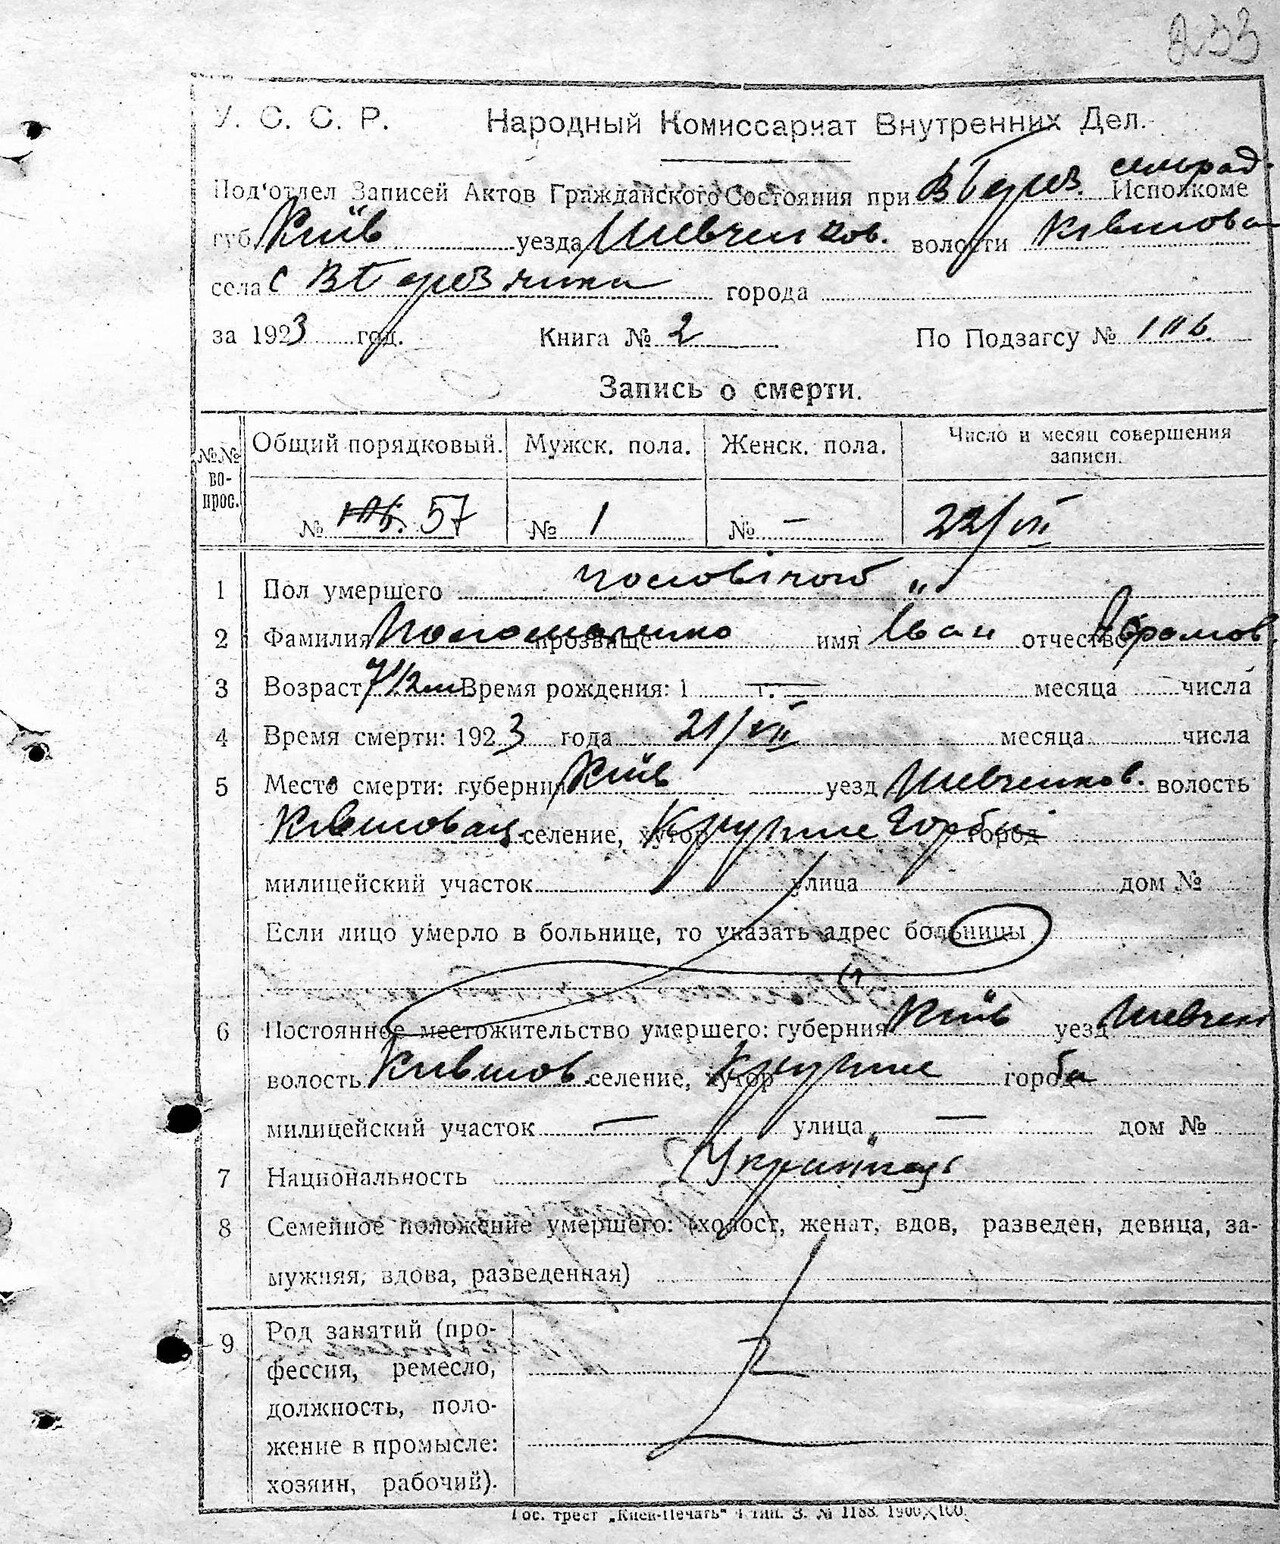 233
У. С. С. Р. Народный Комиссариат Внутренних Дел.
Под'отдел Записей Актов Гражданского Состояния при В Терез. сельрад. Исполкоме
губ. Київ уезда Шевченков. волости Ківшова
села с В Терезчики города
за 1923 год. Книга № 2 По Подзагсу №
Запись о смерти.
№№ вопрос. Общий порядковый. Мужск. пола. Женск. пола. Число и месяц совершения записи.
№ 57 № 1 № — 22/VII
1 Пол умершего чоловічого
2 Фамилия прозвище имя Іван отчество Абрамов
3 Возраст 7 1/2 Время рождения: 1 г. — месяца числа
4 Время смерти: 1923 года 21/VII месяца числа
5 Место смерти: губерния Київ уезд Шевченков. волость
селение, хутор Круглие Горби город
милицейский участок улица дом №
Если лицо умерло в больнице, то указать адрес больницы
6 Постоянное местожительство умершего: губерния Київ уезд Шевчен
волость Ківшов. селение, хутор Круглие города
милицейский участок — улица — дом №
7 Национальность Українець
8 Семейное положение умершего: (холост, женат, вдов, разведен, девица, за-
мужняя, вдова, разведенная)
9 Род занятий (про-
фессия, ремесло,
должность, поло-
жение в промысле:
хозяин, рабочий).
Гос. трест „Киев-Печать" 4 тип. З. № 1188. 1900×100.